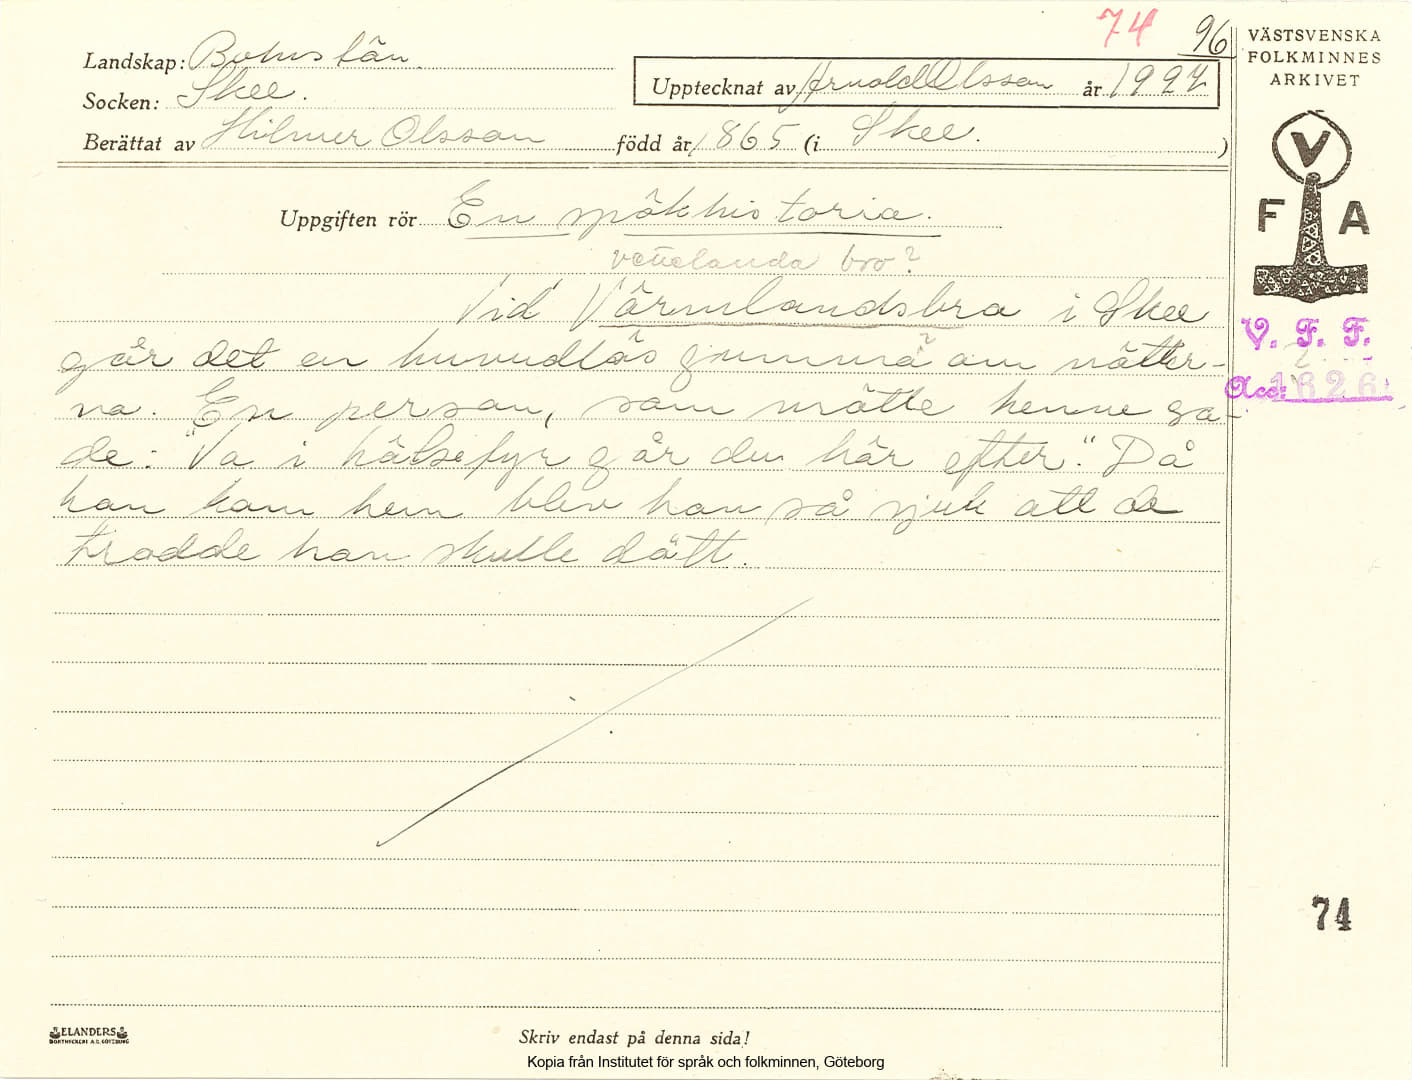 74 96
Landskap: Bohuslän.
Socken: Skee.
Upptecknat av Arnold Olsson år 1927
Berättat av Hilmer Olsson född år 1865 (i Skee. )
VÄSTSVENSKA
FOLKMINNES
ARKIVET
V
F A
Uppgiften rör En spökhistoria.
bro?
Vid Värmlandsbro i Skee
går det en huvudlös gumma om nätter-
na. En person, som mötte henne sa-
de: "Va i hälsefyr går du här efter." Då
han kom hem blev han så sjuk att de
trodde han skulle dött.
V. F. F.
Acc: 1626
74
ELANDERS
BOKTRYCKERI A.B. GÖTEBORG
Skriv endast på denna sida!
Kopia från Institutet för språk och folkminnen, Göteborg